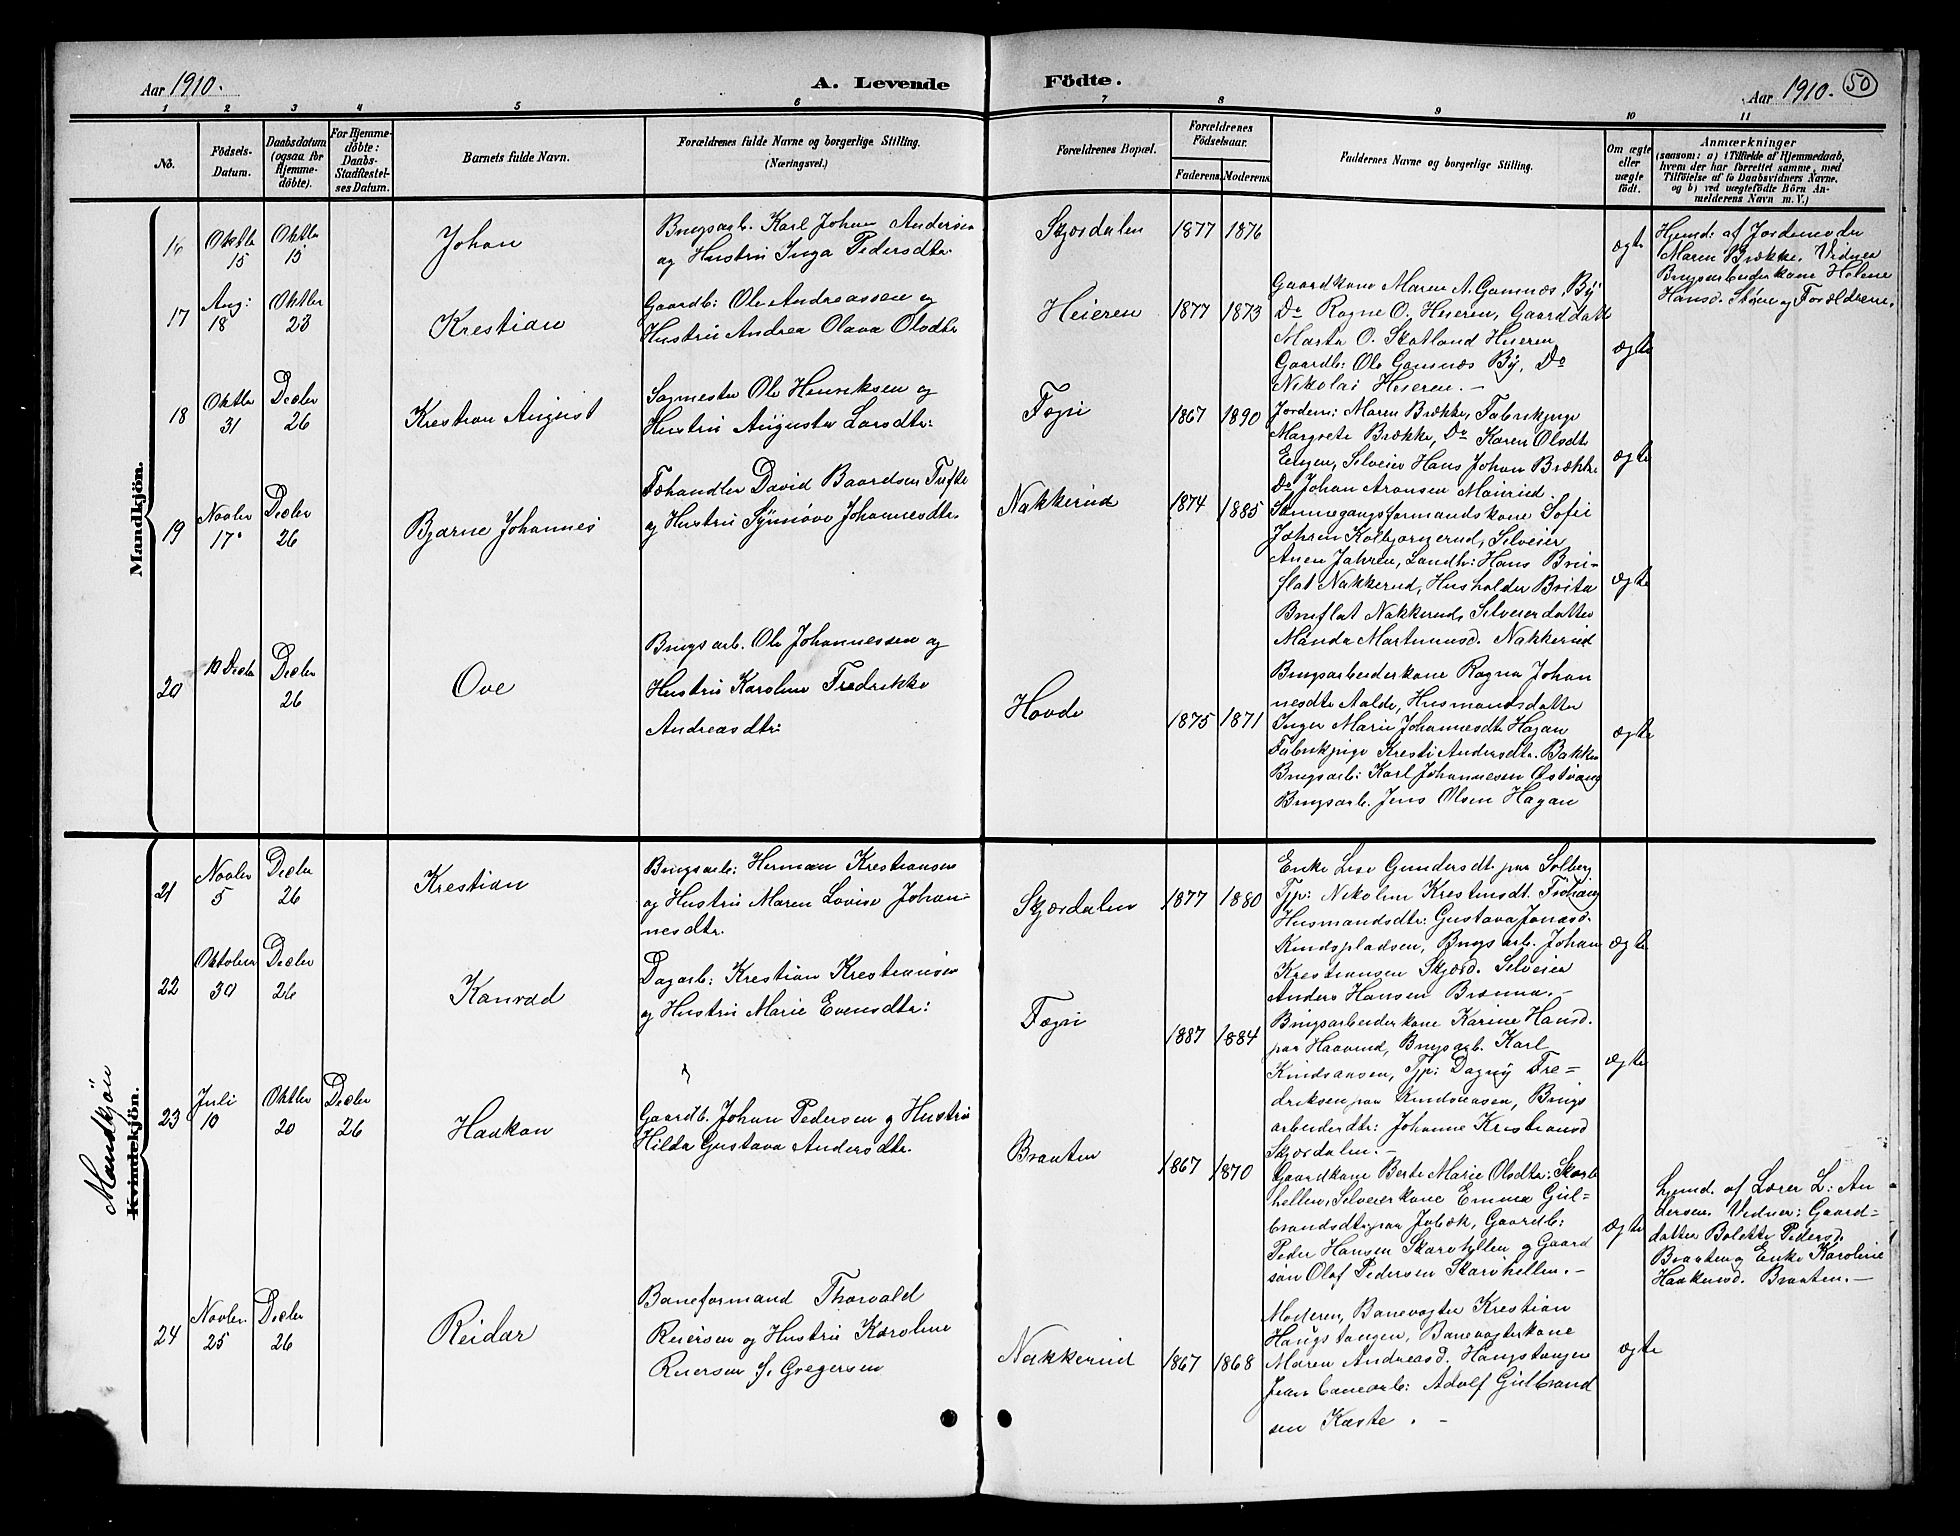 Aar 1910.
A. Levende Födte.
Aar 1910. 50
1 2 3 4 5 6 7 8 9 10 11
Nô.
Födsels-Datum.
Daabsdatum (ogsaa for Hjemme-döbte).
For Hjemme-döbte: Daabs-Stadfæstelses Datum.
Barnets fulde Navn.
Forældrenes fulde Navne og borgerlige Stilling. (Næringsvei.)
Forældrenes Bopæl.
Forældrenes Födselsaar.
Faderens. Moderens.
Faddernes Navne og borgerlige Stilling.
Om ægte eller uægte födt.
Anmærkninger
(saasom: a) i Tilfælde af Hjemmedaab,
hvem der har forrettet samme, med
Tilföielse af to Daabsvidners Navne.
og b) ved uægtefödte Börn An-
melderens Navn m. V.)
Mandkjön.
16
Oktbr 15
Oktbr 15
Johan
Brugsarb. Karl Johan Andersen
og Hustru Inga Pedersdtr.
Skjærdalen
1877 1876
ægte
Hjemd: af Jordemoder
Maren Brække. Vidner
Brugsarbeiderkone Helene
Hansd. Støen og Forældrene.
17
Aug: 18
Oktbr 23
Krestian
Gaardb: Ole Andreassen og
Hustru Andrea Olava Olsdtr
Heieren
1877 1873
Gaardkone Maren A. Gomnæs, By
Do Ragne O. Heieren, Gaarddatt
Marta O. Skotland Heieren
Gaardb: Ole Gomnæs By, Do
Nikolai Heieren. -
ægte
18
Oktbr 31
Decbr 26
Krestian August
Sagmester Ole Henriksen og
Hustru Augusta Larsdtr:
Fægri
1867 1890
Jordem: Maren Brække, Fabrikpige
Margrete Brække, Do Karen Olsdtr
Engen, Selveier Hans Johan Brække
Do Johan Aronsen
ægte
19
Novbr 17
Decbr 26
Bjarne Johannes
Fæhandler David Baardsen Tufte
og Hustru Synnøve Johannesdtr.
Nakkerud
1874 1885
Sofie
Kolbjørnerud, Selveier
Anen Jahren, Landh: Hans Bru-
flat Nakkerud, Husholder Brita
Bruflat Nakkerud, Selveierdatter
Manda Martinusd. Nakkerud
ægte
20
10 Decbr
Decbr 26
Ove
Brugsarb. Ole Johannessen og
Hustru Karoline Fredrikke
Andreasdtr:
Hovde
1875 1871
Brugsarbeiderkone Ragna Johan
nesdtr Aalde, Husmandsdatter
Inger Marie Johannesdtr Hagan
Fabrikpige Kresti Andersdtr. Bakken
Brugsarb: Karl Johannesen Østvang
Brugsarb. Jens Olsen Hagan
ægte
Mandkjön
Kvindekjön.
21
Novbr 5
Decbr 26
Krestian
Brugsarb: Herman Krestiansen
og Hustru Maren Lovise Johan-
nesdtr.
Skjærdalen
1877 1880
Enke Lise Gundersdt. paa Solberg
Tjp: Nikoline Krestinsdt.
Husmandsdtr: Gustava Jonasd.
Rundspladsen, Brugsarb. Johan
Krestiansen Skjærd. Selveier
Anders Hansen Brænna. -
ægte
22
Oktober 30
Decbr 26
Konrad
Dagarb: Krestian Krestiansen
og Hustru Marie Evensdtr:
Fægri
1887 1884
Brugsarbeiderkone Karine Hansd.
paa Haavrud, Brugsarb. Karl
Tjp: Dagny Fre-
driksen paa Brugs
arbeiderdtr: Johanne Kristiansd
Skjærdalen. -
ægte
23
Juli 10
Oktbr 20
Decbr 26
Haakon
Gaardb. Johan Pedersen og Hustru
Hilda Gustava Andersdtr.
Braaten
1867 1870
Gaardkone Berte Marie Olsdtr: Skarv
hellen, Selveierkone Emma Gul-
brandsdtr paa Gaardb:
Peder Hansen Skarvhellen og Gaard
søn Olaf Pedersen Skarvhellen. -
ægte
hjemd. af Lærer L: An
dersen. Vidner: Gaard-
datter Bolette Pedersd.
Braaten og Enke Karoline
Haakensd. Braaten. -
24
Novbr 25
Decbr 26
Reidar
Baneformand Thorvald
Ruersen og Hustru Karoline
Ruersen f. Gregersen
Nakkerud
1867 1868
Moderen, Banevogter Krestian
Haugstangen, Banevogterkone
Maren Andreasd. Haugstangen
banearb: Adolf Gulbrand
sen Kaste. -
ægte